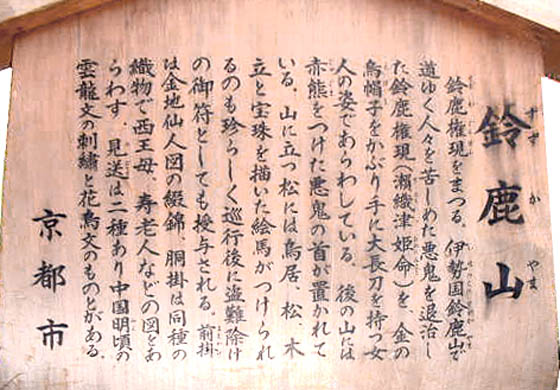 鈴鹿山
鈴鹿権現をまつる。伊勢国鈴鹿山で
道ゆく人々を苦しめた悪鬼を退治し
た鈴鹿権現(瀬織津姫命)を、金の
烏帽子をかぶり手に大長刀を持つ女
人の姿であらわしている。後の山には
赤熊をつけた悪鬼の首が置かれて
いる。山に立つ松には鳥居、松、木
立と宝珠を描いた絵馬がつけられ
るのも珍らしく巡行後に盗難除け
の御符としても授与される。前掛
は金地仙人図の綴錦、胴掛は同種の
織物で西王母、寿老人などの図をあ
らわす。見送は二種あり中国明頃の
雲龍文の刺繍と花鳥文のものとがある。
京都市